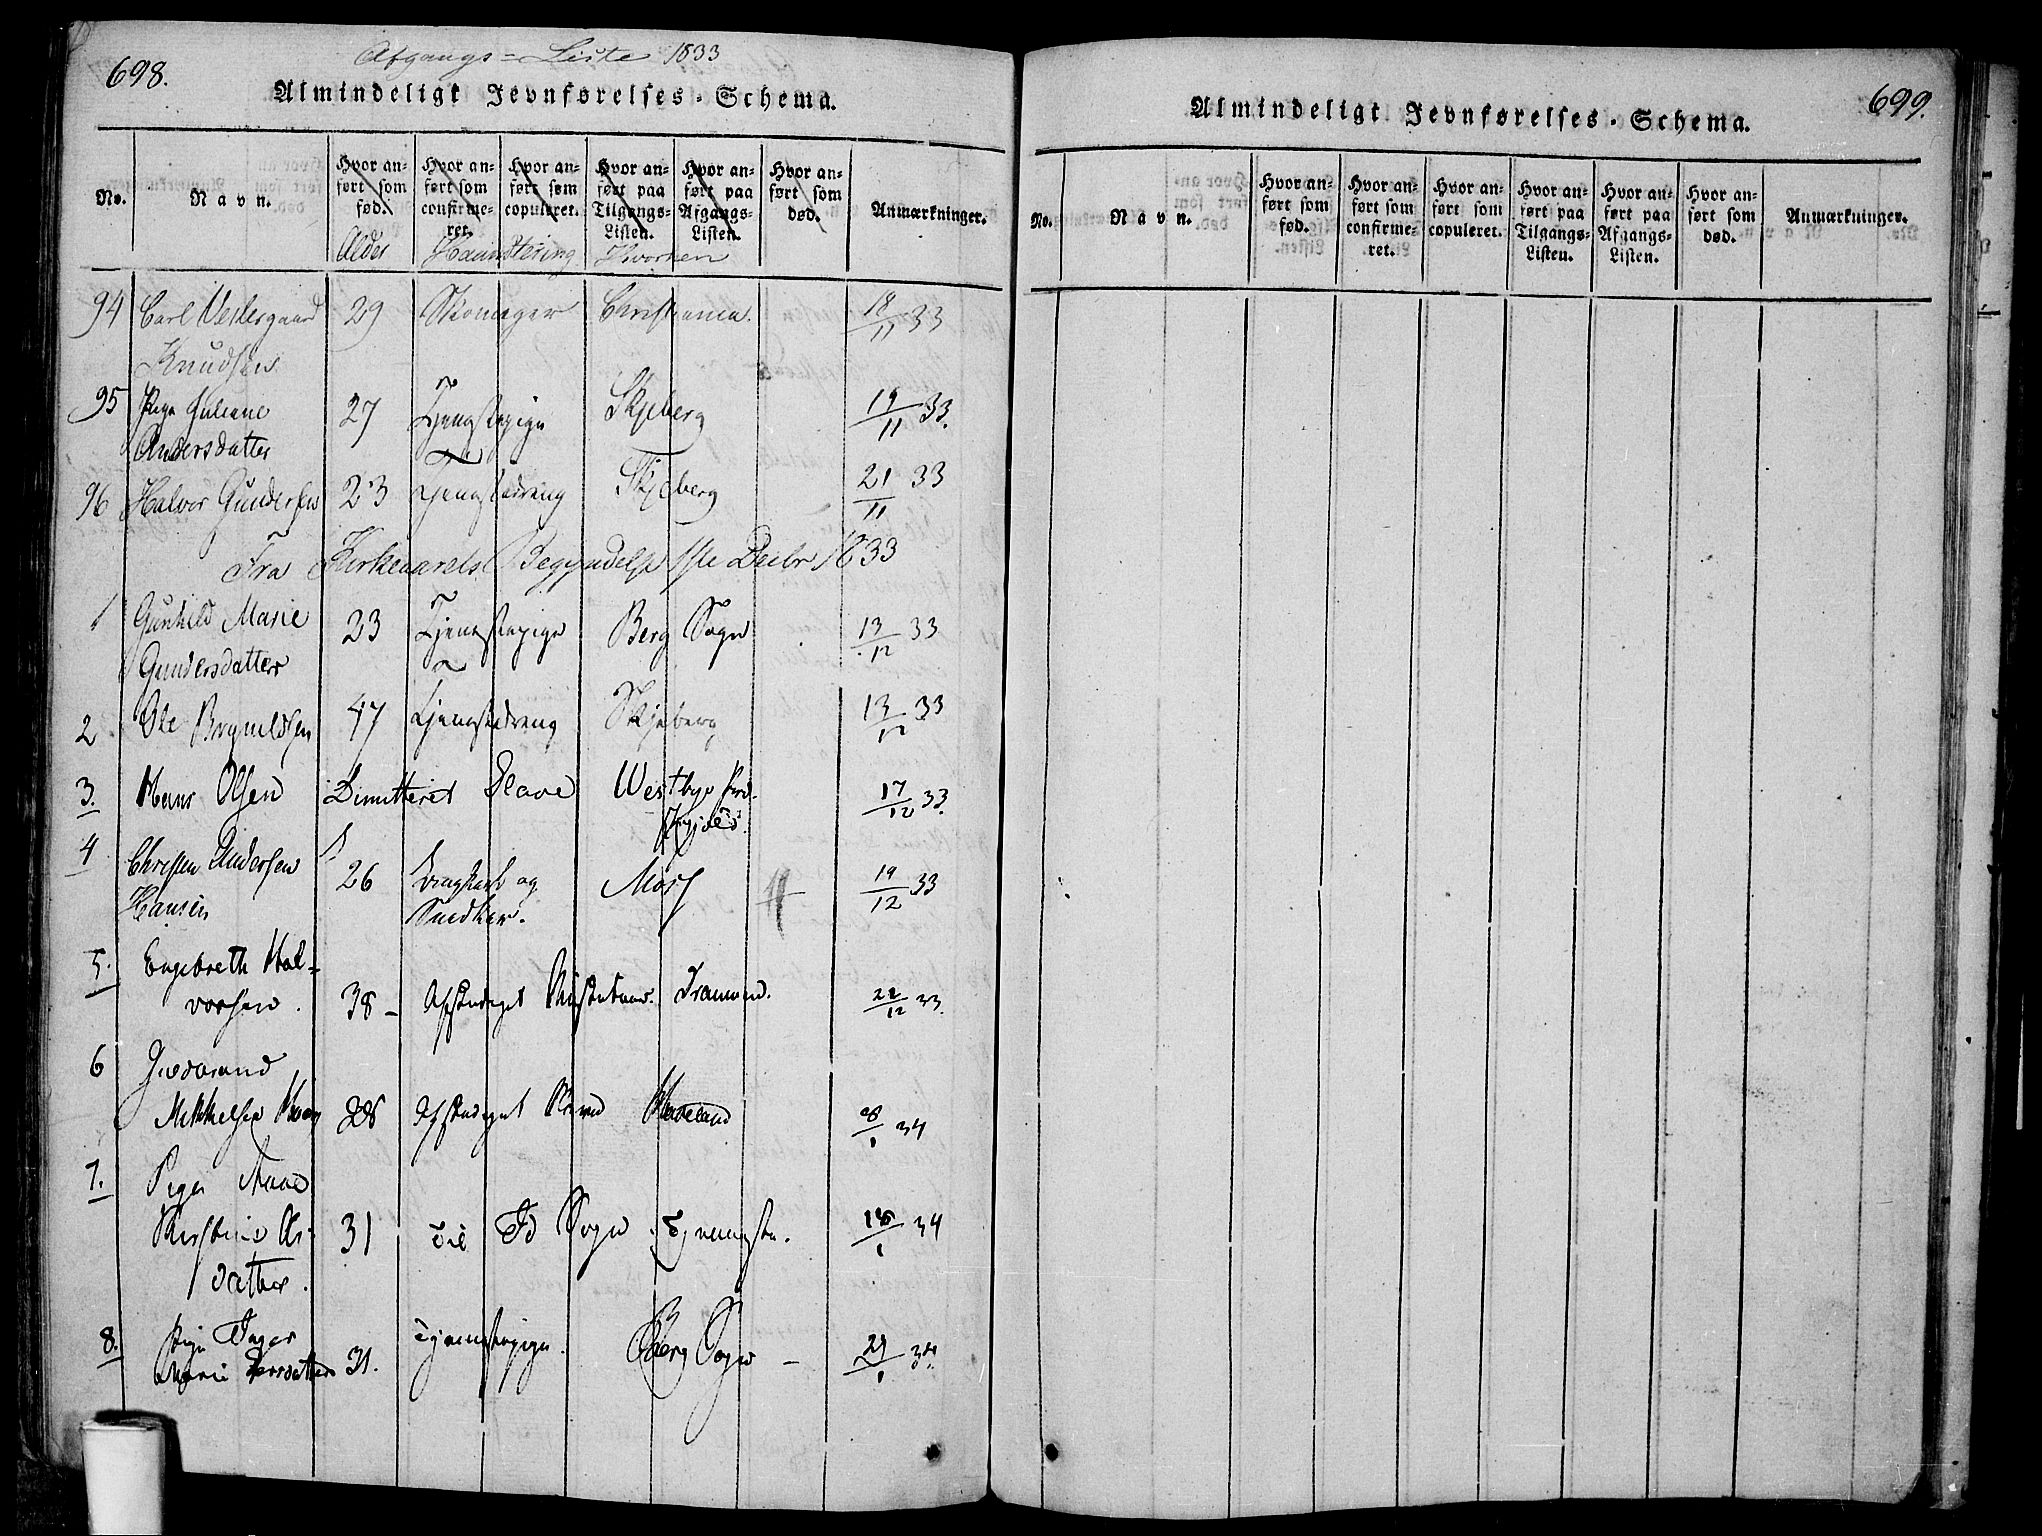 698.
Afgangs-Liste 1833
Almindeligt Jevnførelses-Schema.
No.
Navn.
Hvor anført som fød.
Hvor anført som confirmeret.
Hvor anført som copuleret.
Hvor anført paa Tilgangs-Listen.
Hvor anført paa Afgangs-Listen.
Hvor anført som død.
Anmærkninger.
Alder Haandtering Hvorhen
94 Carl Vestergaard 29 Skomager Christiania. 18/11 33
Knudsen
95 Pige Juliane 27 Tjenestepige Skjeberg 19/11 33.
Andersdatter
96 Halvor Gundersen 23 Tjenestedreng Skjeberg 21/11 33
Fra Kirkeaarets Begyndelse 1ste Decbr 1833
1 Gunhild Marie 23 Tjenestepige Berg Sogn 13/12 33
Gundersdatter
2 Ole Brynildsen 47 Tjenestedreng Skjeberg 13/12 33
3. Hans Olsen Dimitteret Slave Westbye 17/12 33.
4 Christen Andersen 26 og Moss 19/12 33
Hansen Snedker.
5. Engebreth Hal-
vorsen. 38 - Afskediget 22/12 33.
6
Mikkelsen 28 Afskediget 34
7. Pige
31 til Id Sogn Tjeneste. 34
datter.
8. Pige Inger Tjenestepige. Berg Sogn -
Marie 31. 34.
699.
Almindeligt Jevnførelses-Schema.
No.
Navn.
Hvor anført som fød.
Hvor anført som confirmeret.
Hvor anført som copuleret.
Hvor anført paa Tilgangs-Listen.
Hvor anført paa Afgangs-Listen.
Hvor anført som død.
Anmærkninger.